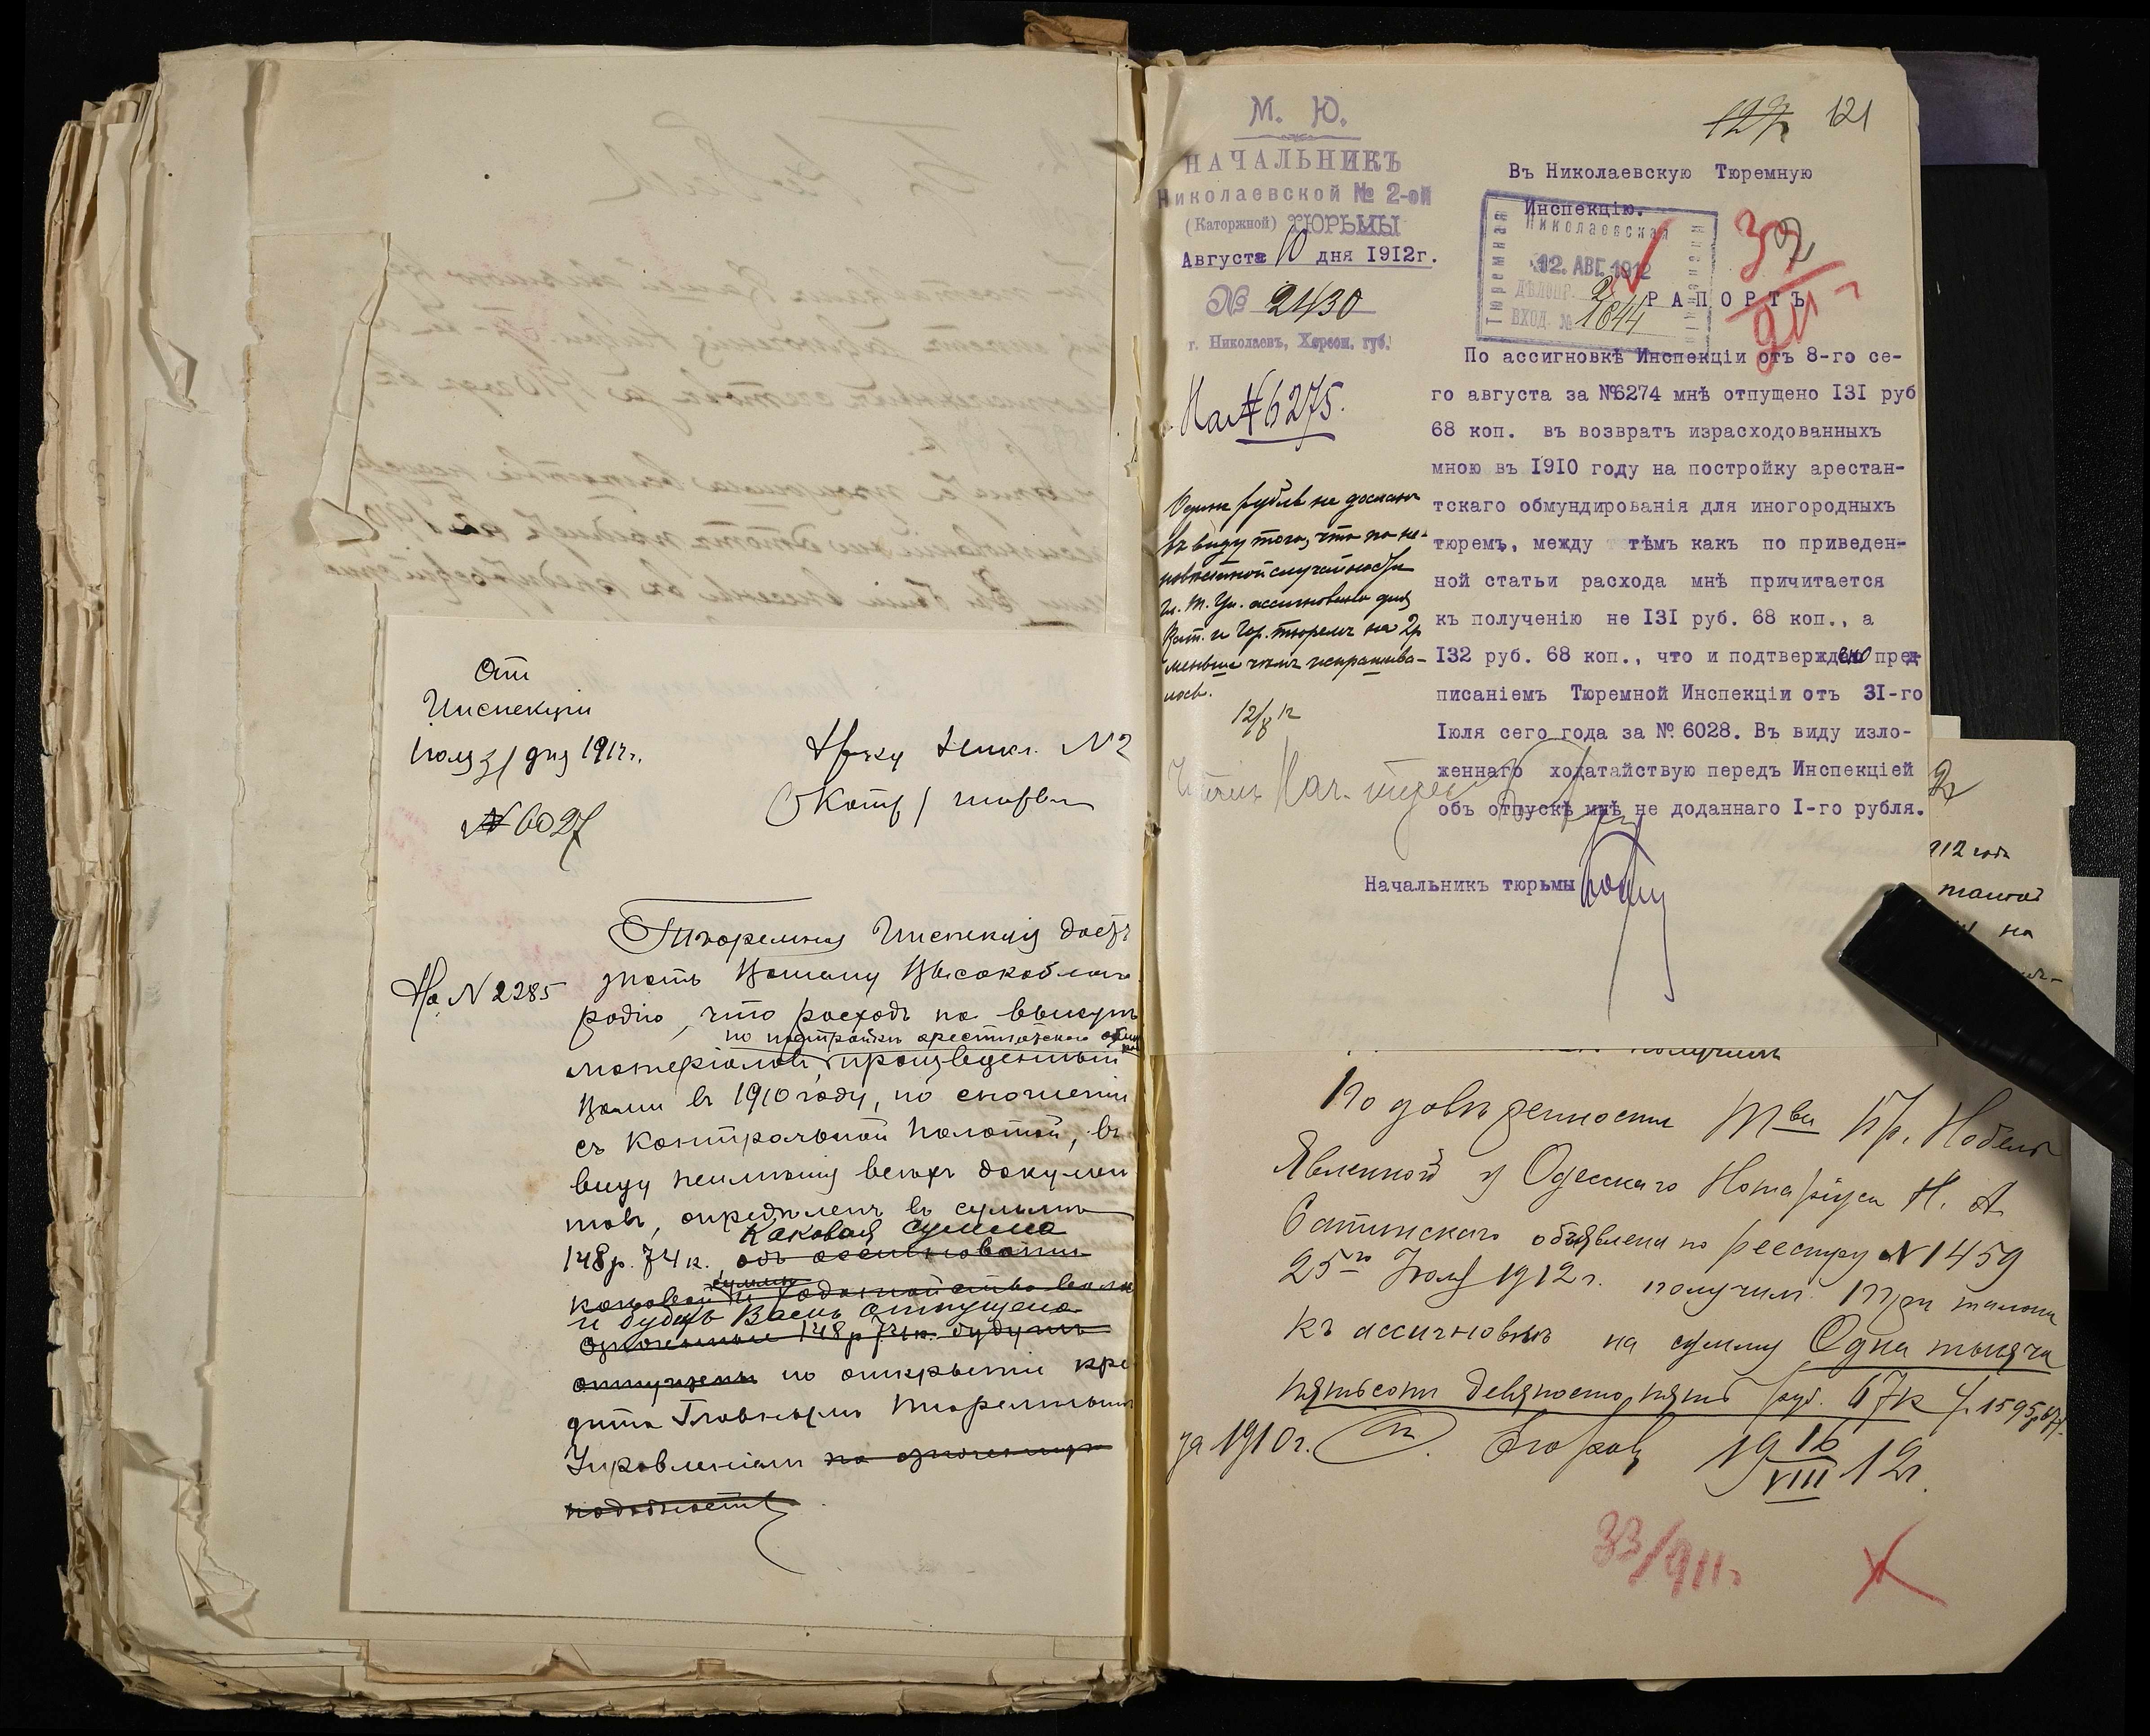 От
Инспекціи
Іюля 31 дня 1912 г.
№ 6027
Н-ку Никол. № 2
(Катор) тюрьмы
На № 2285
Тюремная Инспекція даетъ
знать Вашему Высокобл
родію, что расходъ по выпуск
по постройкѣ арестантскаго обмун
матеріаловъ, произведенный
Вами въ 1910 году, по сношеніи
съ Контрольной Палатой, въ
виду неимѣнія всѣхъ докумен
товъ, опредѣленъ въ суммѣ
каковая сумма
148 р. 74 к.
и будетъ Вамъ отпущена
означенные 148 р 74 к. будутъ
отпущены по открытіи кре
дита Главнымъ Тюремнымъ
Управленіемъ по означенную
надобность.
М. Ю.
НАЧАЛЬНИКЪ
Николаевской № 2-ой
(Каторжной) ТЮРЬМЫ
Августа 10 дня 1912г.
№ 2430
г. Николаевъ, Херсон. губ.
На № 6275.
127 121
Въ Николаевскую Тюремную
Инспекцію.
Николаевская
Тюремная
Инспекція
12. АВГ. 1912
ДѢЛОПР. 2
ВХОД. № 1844
РАПОРТЪ
По ассигновкѣ Инспекціи отъ 8-го се-
го августа за №6274 мнѣ отпущено I3I руб
68 коп. въ возвратъ израсходованныхъ
мною въ I9I0 году на постройку арестан-
тскаго обмундированія для иногородныхъ
тюремъ, между тѣмъ какъ по приведен-
ной статьи расхода мнѣ причитается
къ полученію не I3I руб. 68 коп., а
I32 руб. 68 коп., что и подтверждено пред
писаніемъ Тюремной Инспекціи отъ 3I-го
Іюля сего года за № 6028. Въ виду изло-
женнаго ходатайствую передъ Инспекціей
объ отпускѣ мнѣ не доданнаго I-го рубля.
Начальникъ тюрьмы
Одинъ рубль не досланъ
въ виду того, что по не-
случайности
Гл. Т. Уп. ассигновано для
Кат. и Гор. тюремъ на 2 р
меньше чѣмъ испрашива-
лось.
12/8 12
912 года
на
получилъ
По довѣренности Т-ва Бр. Нобель
Явленной у Одесскаго Нотаріуса Н. А.
объявлена по реестру № 1459
25го Іюля 1912 г. получилъ три талона
къ ассигновкѣ на сумму Одна тысяча
пятьсотъ девяносто пять руб. 67 к 1595 р 67 к.
за 1910 г. Егоровъ 19 16/VIII 12 г.
33/911 г.